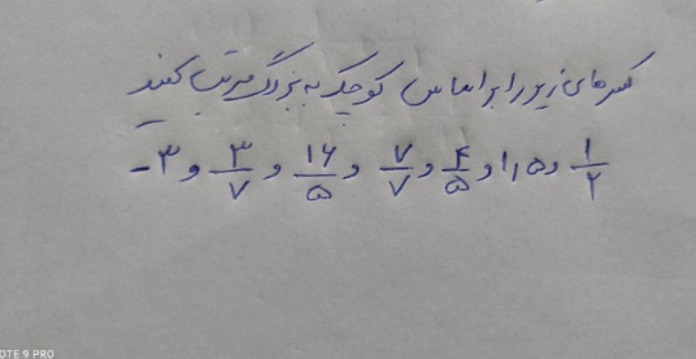 کسرهای زیر را براساس کوچک به بزرگ مرتب کنید
۱/۲ و ۱,۵ و ۴/۵ و ۷/۷ و ۱۶/۵ و ۳/۷ و ۳-
OTE 9 PRO